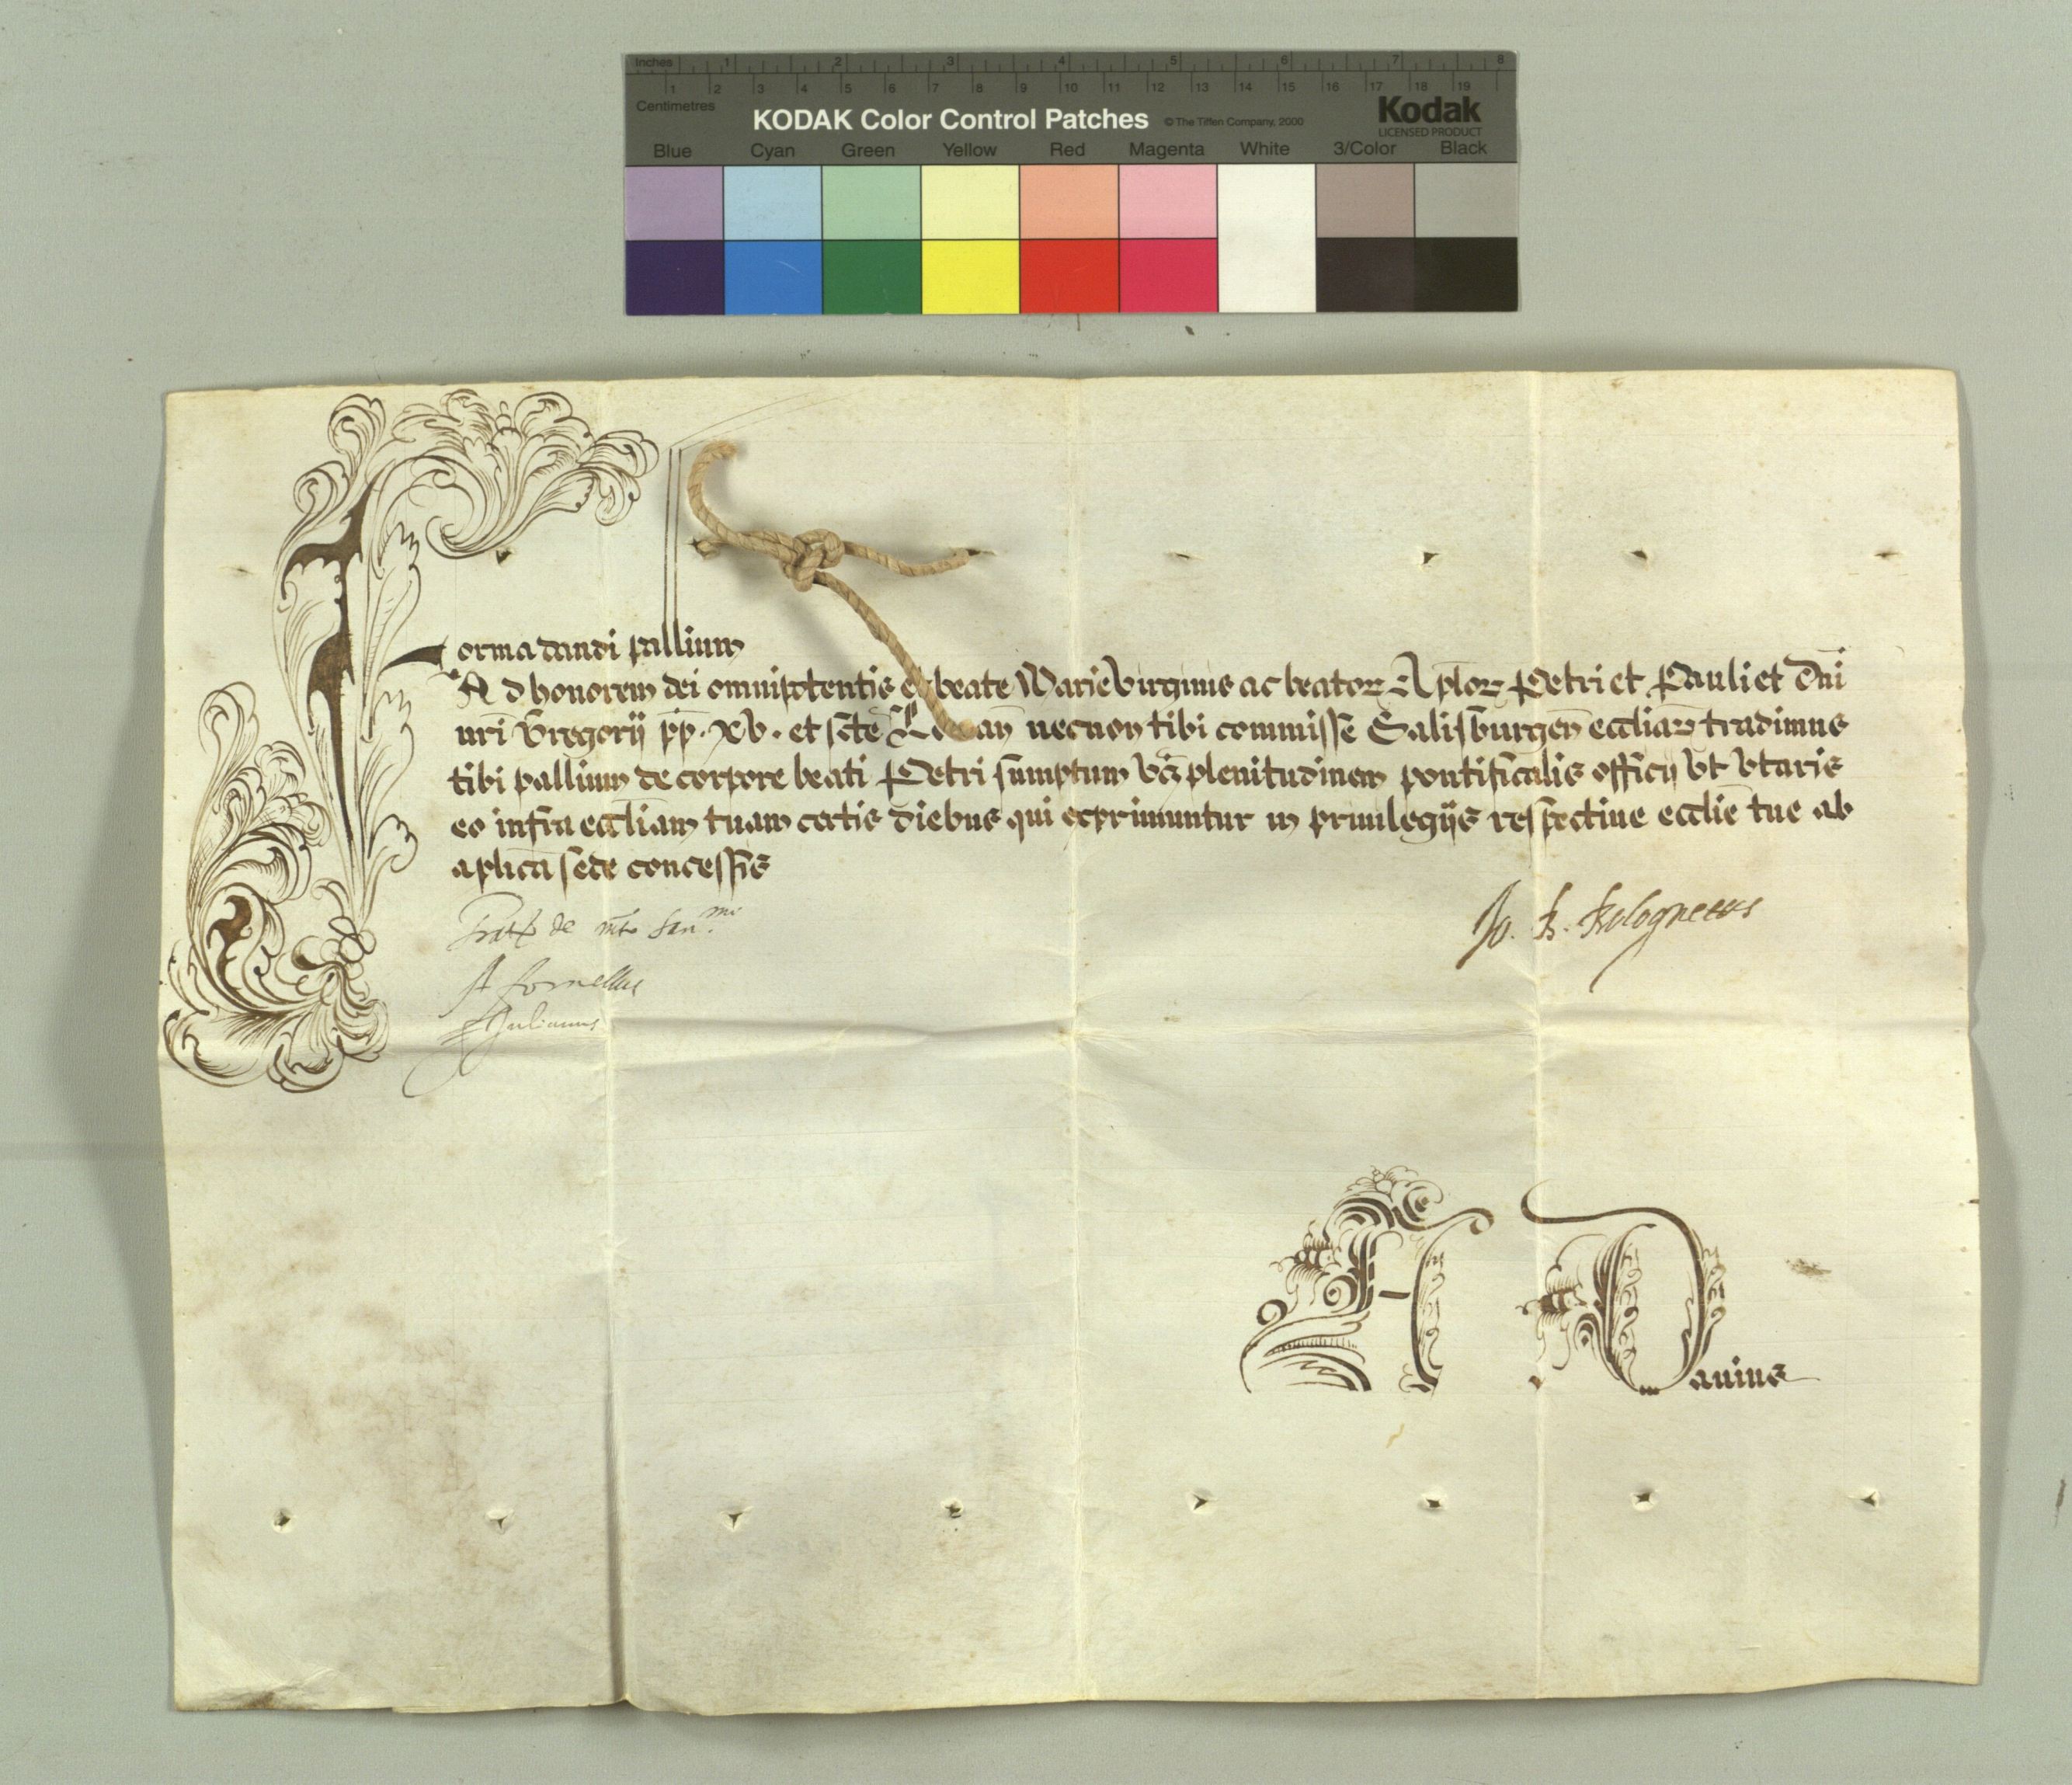 Inches 1 2 3 4 5 6 7 8
1 2 3 4 5 6 7 8 9 10 11 12 13 14 15 16 17 18 19
Centimetres
KODAK Color Control Patches © The Tiffen Company, 2000 Kodak
LICENSED PRODUCT
Blue Cyan Green Yellow Red Magenta White 3/Color Black
Forma dandi pallium
Ad honorem dei omnipotentis et beate Marie Virginis ac beatoꝝ Apl̄oꝝ Petri et Pauli et Dn̄i
nr̄i Gregorij pp̄. xv. et sc̄te Ro an̄ necnon tibi commisse Salisburgen̄ eccliaꝝ tradimus
tibi pallium de corpore beati Petri sumptum vƺ plenitudinem pontificalis officij vt vtaris
eo infra eccl̄iam tuam certis diebus qui exprimuntur in priuilegijs respectiue eccl̄ie tue ab
aplica sede concessis
de san.mi
Jo. B. Bolognettus
A Cornellus
Julianus
A Danius